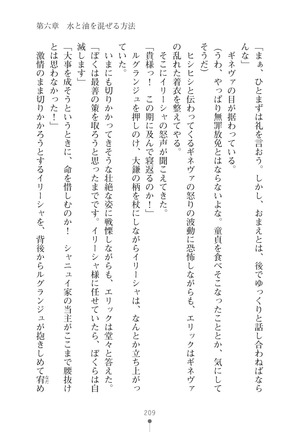 第六章　水と油を混ぜる方法
「まぁ、ひとまずは礼を言おう。しかし、おまえとは、後でゆっくりと話し合わねばなら
んな」
ギネヴァの目が据わっている。
（うわ、やっぱり無罪放免とはならないよな。童貞を食べそこなったこととか、してしま
そうだ）
ヒシヒシと伝わってくるギネヴァの怒りの波動に恐怖しながらも、エリックはギネヴァ
の乱れた着衣を整えてやる。
そこにイリーシャの怒声が聞こえてきた。
「貴様っ！　この期に及んで寝返るのか！」
ルグランジュを押しのけ、大鎌の柄を杖にしながらイリーシャは、なんとか立ち上がっ
ていた。
いまにも切りかかってきそうな壮絶な姿に戦慄しながらも、エリックは堂々と答えた。
「ぼくは最善の策を取ろうと思ったまでです。イリーシャ様に任せていたら、ぼくらは自
滅します」
「大事を成そうというときに、命を惜しむのか！　シャニュイ家の当主がここまで腰抜け
とは思わなかった！」
激情のまま切りかかろうとするイリーシャを、背後からルグランジュが抱きしめて宥め
209